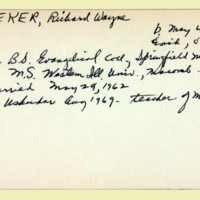 EKER, Richard Wayne
b. May 4
Enid, O
B.D. Evangelical Coll, Springfield M
M.S. Western Ill. Univ., Macomb
rried May 29, 1962
Uskudar Aug 1969 - teacher of M